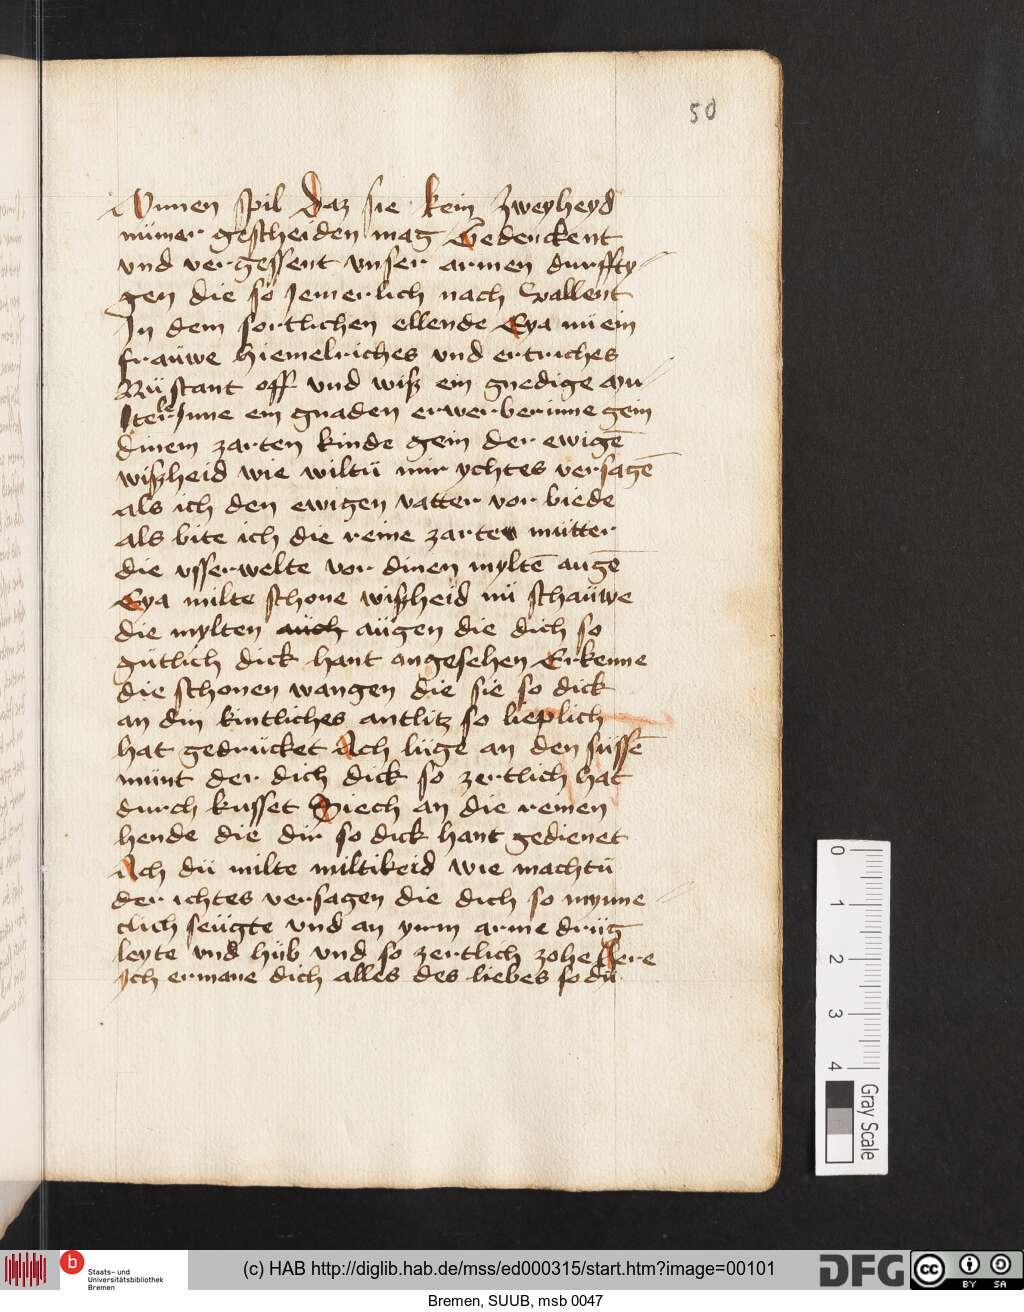 50
Wunnen spil Daz sie kein zweyheyd
nümer gescheiden mag Gedenckent
vnd vergessent vnser armen durffty-
gen die so Jemerlich nach wallent
In dem sortlichen ellende Eya nü ein
fraüwe hiemelriches vnd ertriches
Nü stant off vnd wisz ein gnedige mu-
terInne ein gnaden erwerberinne gein
dinem zarten kinde gein der ewigē
wiszheid wie wiltü mir ychtes versagē
als ich den ewigen vatter vor biede
als bite ich die reine zarte mütter
die vsserwelte vor dinen myltē augē
Eya milte schone wiszheid nü schaüwe
die mylten auch aügen die dich so
gütlich dick hant angesehen Erkenne
die schonen wangen die sie so dick
an din kintliches antlitz so lieplich
hat gedrücket Ach lüge an den süssē
münt der dich dick so zertlich hat
durch kusset Siech an die reinen
hende die dir so dick hant gedienet
Ach dü milte miltikeid wie machtü
der ichtes versagen die dich so mynne-
clich seügte vnd an yrm arme drüg
leyte vnd hüb vnd so zertlich zohe Here
Ich ermane dich alles des liebes so dü
0
1
2
3
4
Gray Scale
b
Staats- und
Universitätsbibliothek
Bremen
(c) HAB http://diglib.hab.de/mss/ed000315/start.htm?image=00101
DFG
cc
BY
SA
Bremen, SUUB, msb 0047